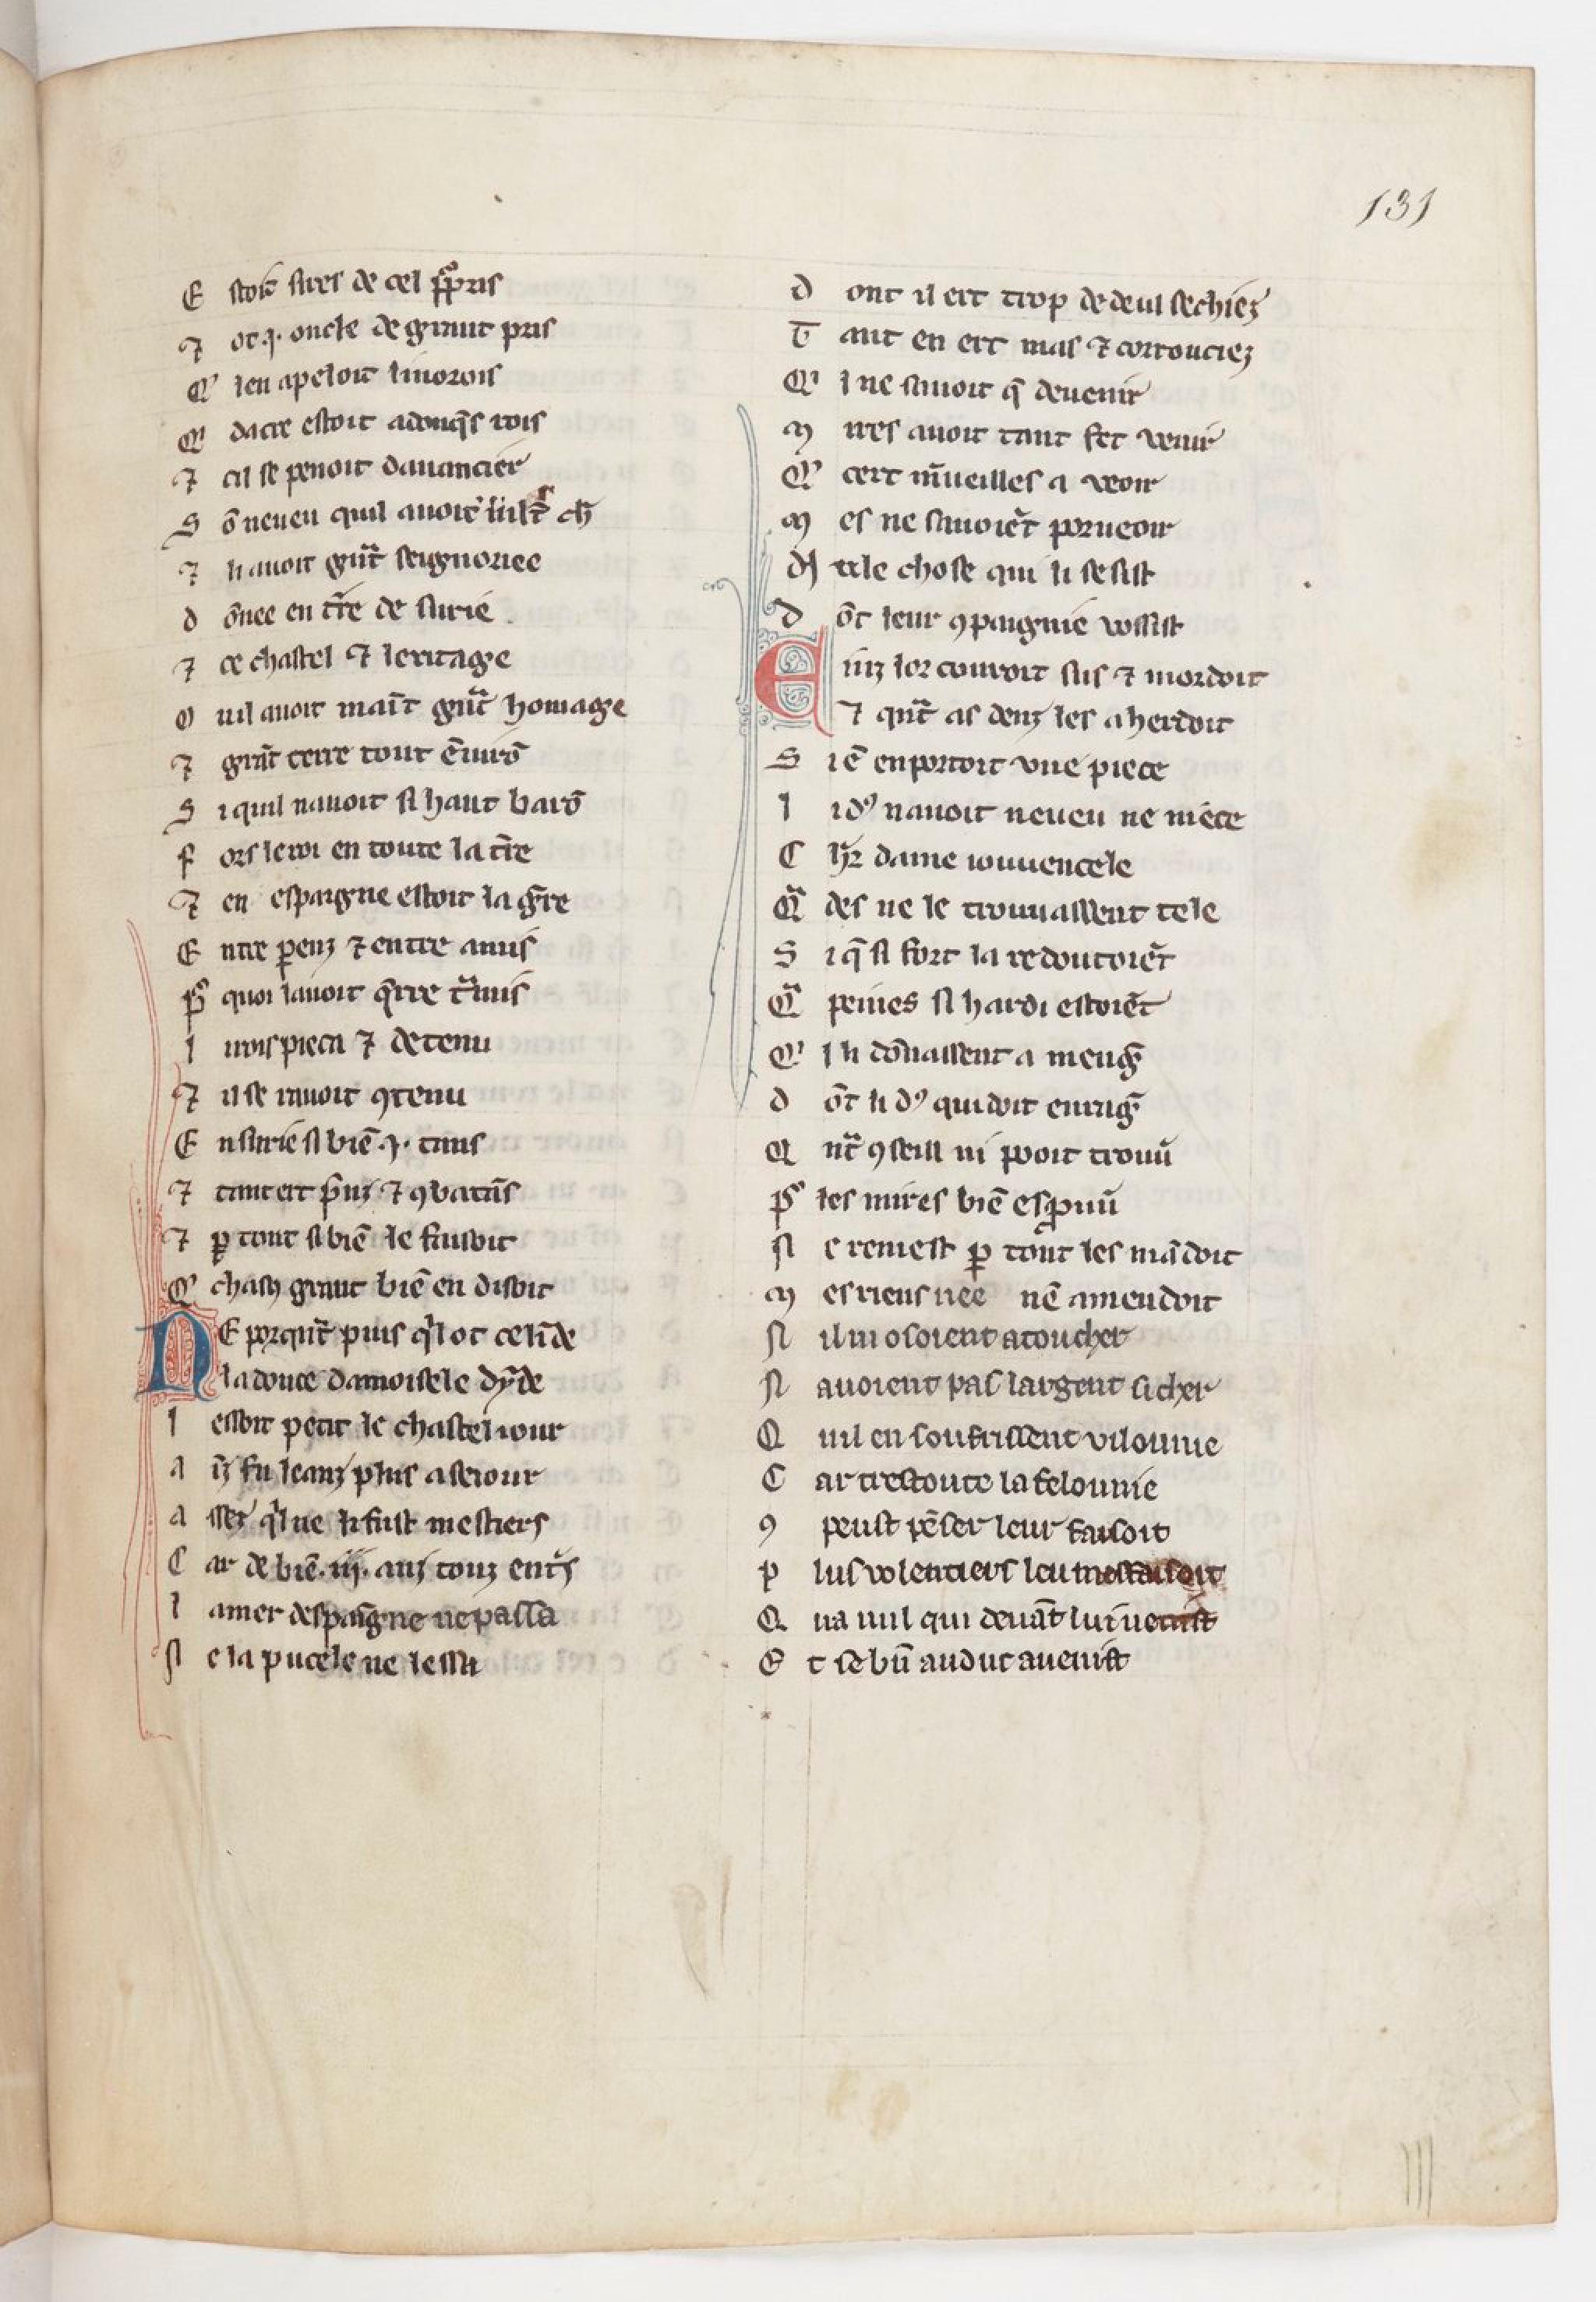 131
E stoit sires de cel ppris
⁊ ot .i. oncle de grant pris
Q' len apeloit limorois
Q' dacre estoit adonq̄s rois
⁊ cil se penoit dauancier
S õ neueu quil auoit
⁊ li auoit gnt seignoriee
d õnee en t̄re de surie
⁊ ce chastel ⁊ leritage
O uil auoit maīt gnt homage
⁊ grāt terre tout ēuirō
S i quil nauoit si haut barō
f ors le roi en toute la t̄re
⁊ en espaigne estoit la ḡre
E ntre penz ⁊ entre amis
P' quoi lauoit q̄rre tmis
l i rois pieca ⁊ detenu
⁊ il se rauoit ꝯtenu
E n surie si biē .i. tans
⁊ tant ert p̄uz ⁊ ꝯbatās
⁊ ꝑ tout si biē le faisoit
Q' chasꝯ grant biē en disoit
N E porqnt puis ql ot celide
l a douce damoisele dyde
l essoit petit le chastel iour
a inz fu leanz plus a seiour
a ssez ql ne li fust mestiers
C ar de biē .iij. anz touz entˢ
l a mer despaigne ne passa
N e la pucele ne lessa
d ont il ert trop de deul sechiez
T ant en ert mas ⁊ corrouciez
Q' l ne sauoit q̄ deuenir
M ires auoit tant fet venir
Q' cert m̄ueilles a veoir
M es ne sauoiēt porueoir
d tele chose qui li sesist
d õt leur ꝯpaignie vosist
E inz lor couroit sus ⁊ mordoit
⁊ qnt as denz les aherdoit
S i ē enportoit vne piece
l i dꝰ nauoit neueu ne niece
C hr dame iouuencele
Q des ne le trouuassent tele
S i q̄ si fort la redoutoiēt
Q peines si hardi estoiēt
Q' l li dõnassent a menḡ
d õt li dꝰ quidoit enraḡ
Q nt ꝯseill ni pooit trouū
P' les mires biē esprouū
N e remest ꝑ tout les mādoit
M es riens nee nē amendoit
N il ni osoient atoucher
N auoient pas largent si cher
Q uil en soufrissent vilounie
C ar trestoute la felounie
ꝯ peust pēser leur faisoit
P lus volentiers leu mesfaisoit
Q ua nul qui deuāt lui uenist
E t se bn̄ au duc auenist